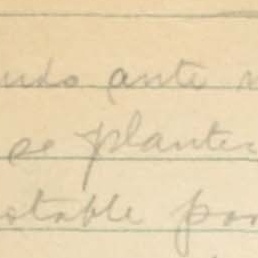 udo ante
se plante
stable por